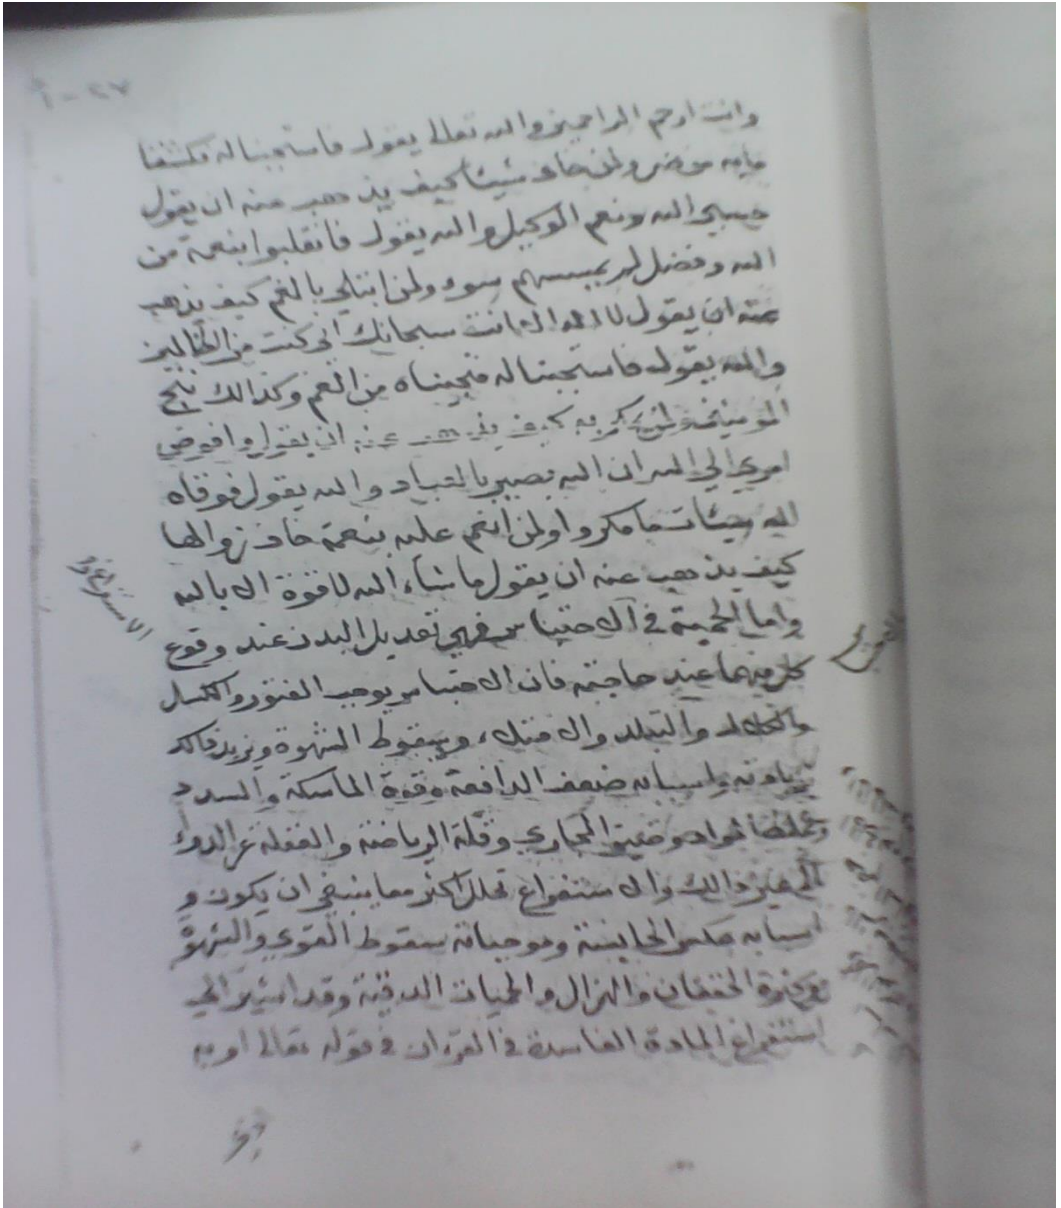 ٢٧ - أ
وانت ارحم الراحمين والله تعالى يقول فاستجبنا له فكشفنا
مابه من ضر ولمن خاف شيئا كيف يذهب عنه ان يقول
حسبي الله ونعم الوكيل والله يقول فانقلبوا بنعمة من
الله وفضل لم يمسسهم سوء ولمن ابتلي بالغم كيف يذهب
عنه ان يقول لا اله الا انت سبحانك اني كنت من الظالمين
والله يقول فاستجبنا له فنجيناه من الغم وكذالك ننجي
المومنين ولمن كربه كيف يذهب عنه ان يقول وافوض
امري الى الله ان الله بصير بالعباد والله يقول فوقاه
الله سيئات ما مكروا ولمن انعم عليه بنعمة خاف زوالها
كيف يذهب عنه ان يقول ما شاء الله لا قوة الا بالله
واما الحمية في الاحتباس فهي تعديل البدن عند وقوع
كل منهما عند حاجته فان الاحتباس يوجب الفتور والكسل
والتبلد والامتلاء وسقوط الشهوة ويزيد
واسبابه ضعف الدافعة وقوة الماسكة والسدد
وغلظ المواد وضيق المجاري وقلة الرياضة والغفلة عن الدواء
الى غير ذالك والاستفراغ تحلل اكثر مما ينبغي ان يكون و
اسبابه عكس الحابسة وموجباته سقوط القوى والشهوة
وكثرة الخفقان والهزال والحميات الدقية وقد اشير الى
استفراغ المادة الفاسدة في القرءان في قوله تعالى او به
الاستفراغ